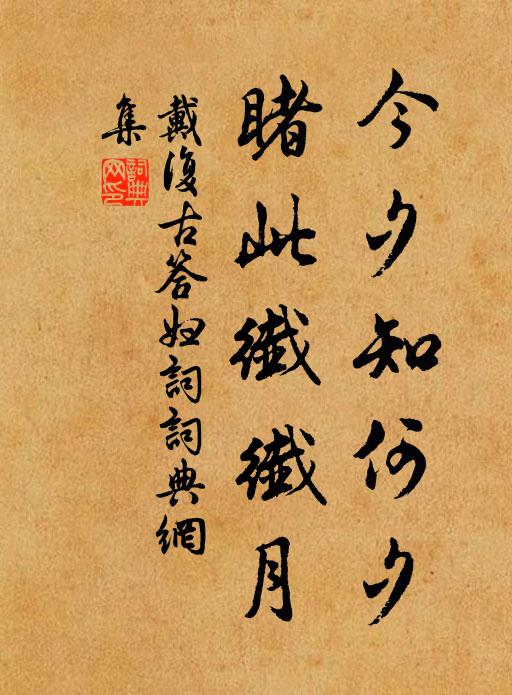 今夕知何夕
睹此纖纖月
戴復古答妇詞詞典網
集
詞典
网印